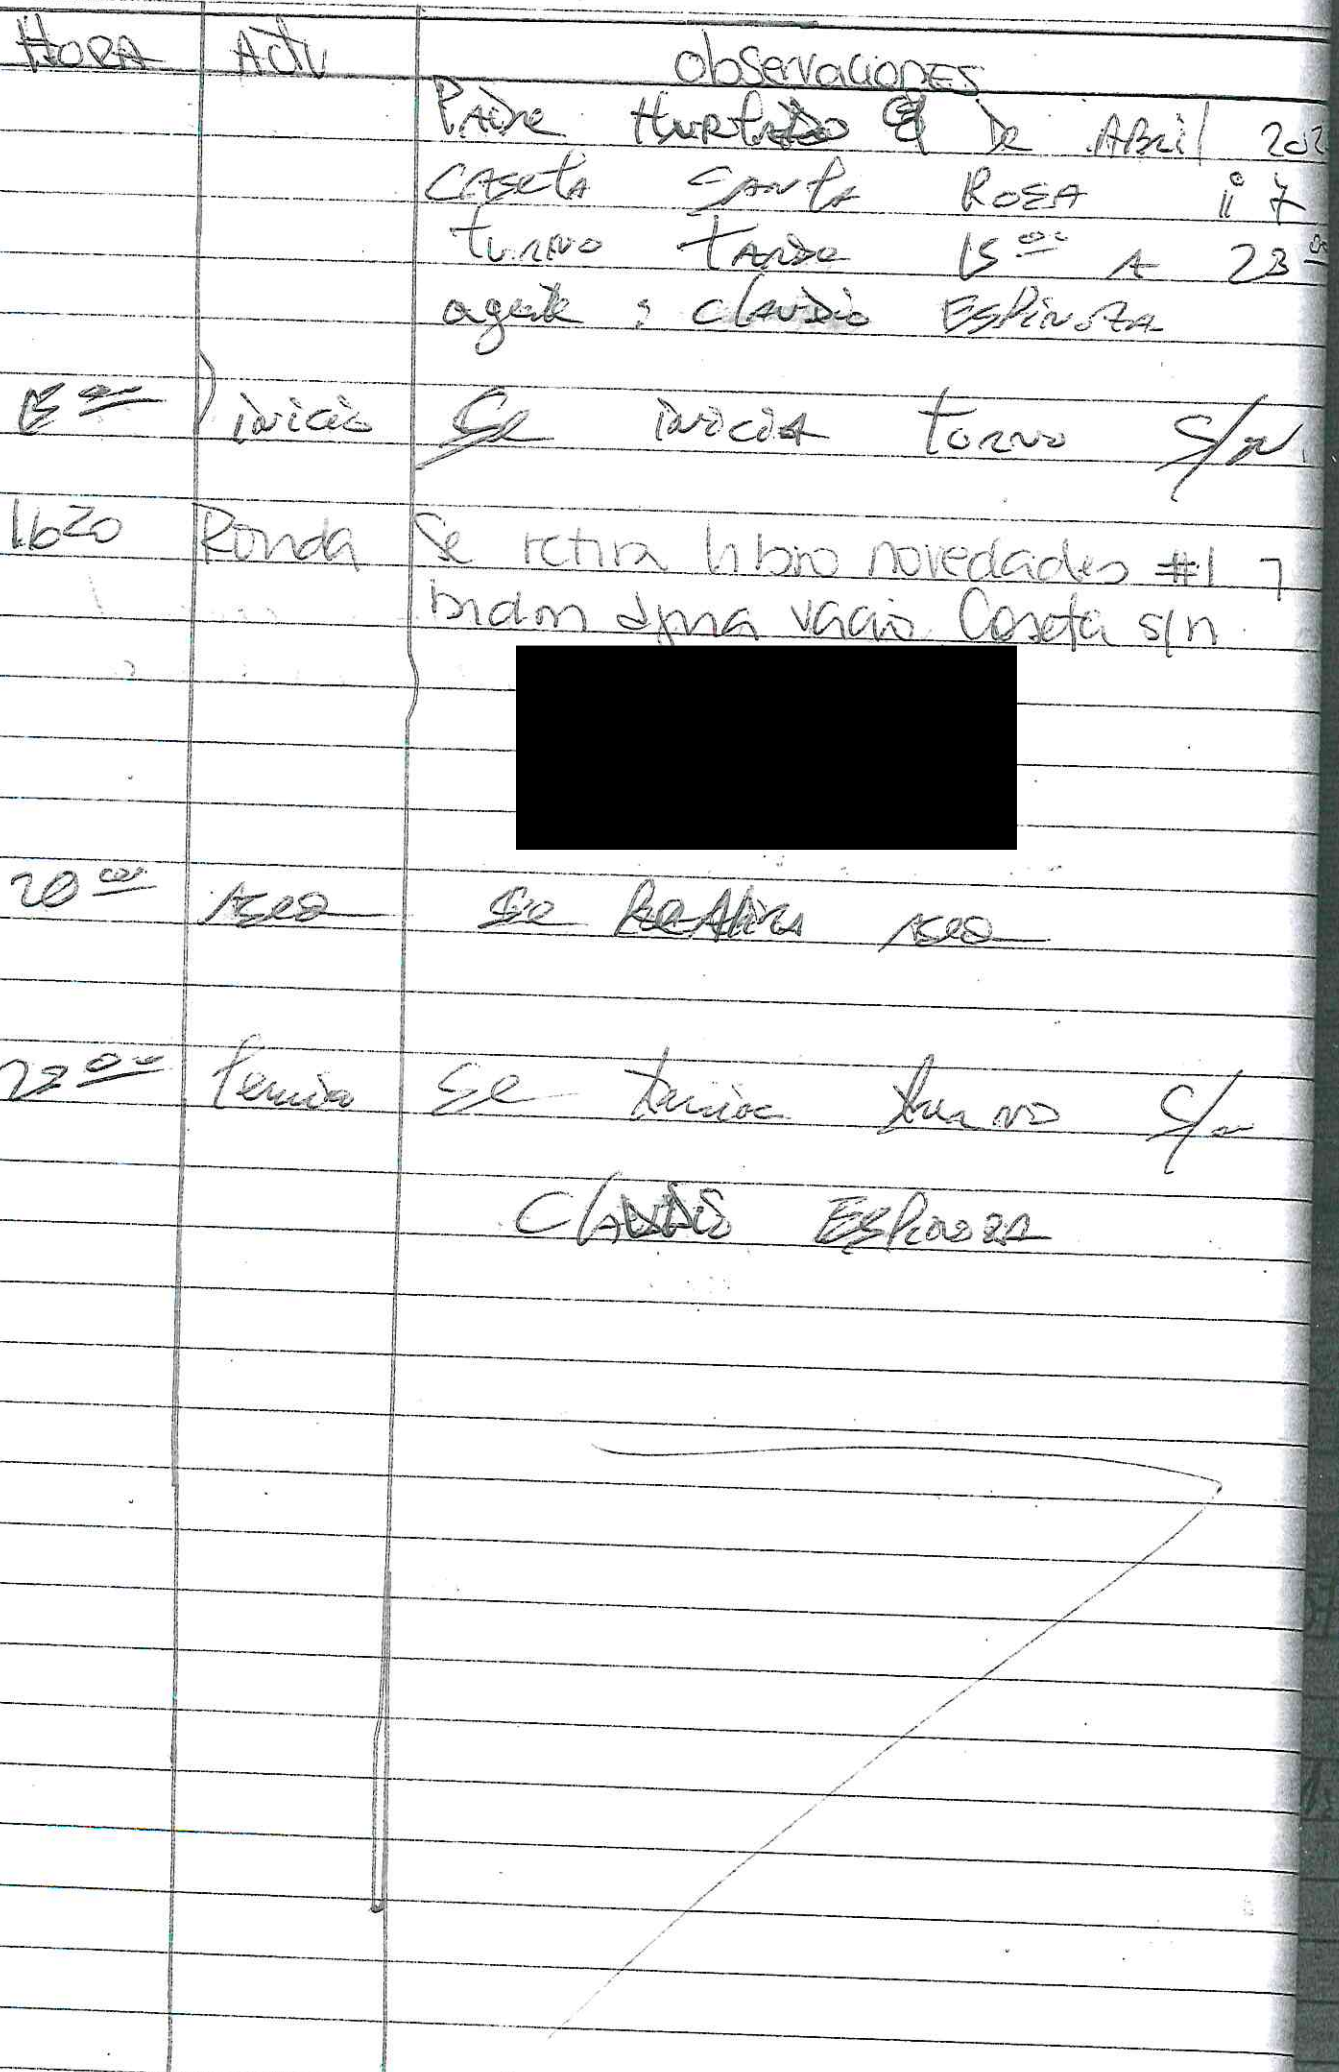 HORA Actv observaciones
PADRE HURTADO de ABril 202
CASETA SANTA ROSA 7
TURNO TARDE 15 00 A 23 00
agente : CLAUDIO ESPINOZA
15 00 inicio Se inicia TURNO S/N.
1620 Ronda Se retira libro novedades #1 7
bidon agua vacio Caseta s/n
20 00 ASEO Se REALiza ASEO
23 00 termino Se termina turno S/N
CLAUDIO ESPINOZA